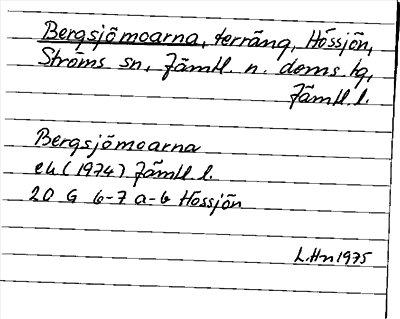 Bergsjömoarna, terräng, Hössjön,
Ströms sn, Jämtl. n. doms. tg,
Jämtl l.
Bergsjömoarna
ek (1974) Jämtl l.
20 G 6-7 a-b Hössjön
L.Hn 1975